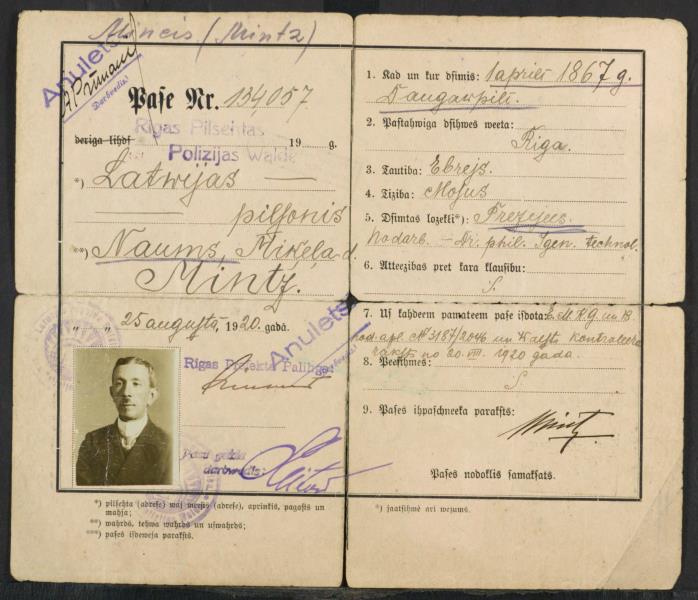 Mincis (Mintz)
Anulets
Darbvedis:
Pase Nr. 134057.
Rigas Pilsehtas
deriga lihds 19 g.
Polizijas walde
*) Latwijas
pilsonis
**) Naums, Mikeļa d.
Mintz.
" " 25 augustā, 1920. gadā.
Anulets
Rigas Prefekta Palihgs
darbvedis:
*) pilsehta (adrese) wai meests (adrese), aprinkis, pagasts un
mahja;
**) wahrds, tehwa wahrds un uswahrds;
***) pases isdeweja paraksts.
1. Kad un kur dsimis: 1 aprilī 1867 g.
Daugawpilī.
2. Pastahwiga dsihwes weeta:
Riga.
3. Tautiba: Ebrejs.
4. Tiziba: Mosus
5. Dsimtas lozekli*): Prezejies.
Nodarb. – Dr. phil. Igen. technol.
6. Atteezibas pret kara klausibu:
7. Us kahdeem pamateem pase isdota:
apl. № 3187/2046 un Walsts Kontroleera
raksts no 20. VIII. 1920 gada.
8. Peesihmes:
9. Pases ihpaschneeka paraksts:
Mintz
Pases nodoklis samaksats.
*) jaatsihmē arī wezums.